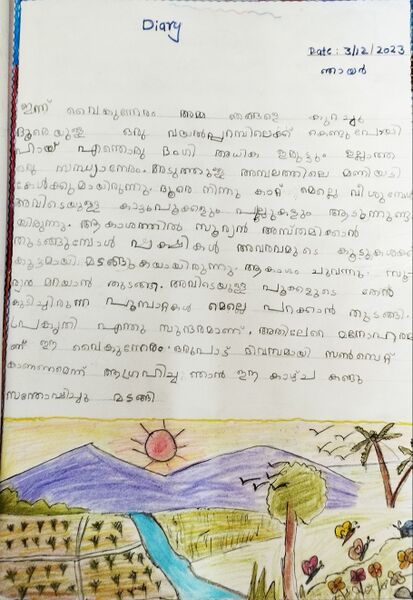 Diary
Date: 3/12/2023
ഞായർ
ഇന്ന് വൈകുന്നേരം അമ്മ ഞങ്ങളെ കുറച്ചു
ദൂരെയുള്ള ഒരു വയൽപ്പറമ്പിലേക്ക് കൊണ്ടുപോയി
ഹായ് എന്തൊരു ഭംഗി അധിക ഇരുട്ടും ഇല്ലാത്ത
ഒരു സന്ധ്യാനേരം. അടുത്തുള്ള അമ്പലത്തിലെ മണിയടി
കേൾക്കുമായിരുന്നു. ദൂരെ നിന്നു കാറ്റ് മെല്ലെ വീശുമ്പോൾ
അവിടെയുള്ള കാട്ടുപൂക്കളും പുല്ലുകളും ആടുന്നുണ്ടാ
യിരുന്നു. ആകാശത്തിൽ സൂര്യൻ അസ്തമിക്കാൻ
തുടങ്ങുമ്പോൾ പക്ഷികൾ അവരവരുടെ കൂടുകളിലേക്ക്
കൂട്ടമായി മടങ്ങുകയായിരുന്നു. ആകാശം ചുവന്നു. സൂ
ര്യൻ മറയാൻ തുടങ്ങി. അവിടെയുള്ള പൂക്കളുടെ തേൻ
കുടിച്ചിരുന്ന പൂമ്പാറ്റകൾ മെല്ലെ പറക്കാൻ തുടങ്ങി.
പ്രകൃതി എന്തു സുന്ദരമാണ്. അതിലേറെ മനോഹരമാ
ണ് ഈ വൈകുന്നേരം. ഒരുപാട് ദിവസമായി സൺസെറ്റ്
കാണണമെന്ന് ആഗ്രഹിച്ച ഞാൻ ഈ കാഴ്ച കണ്ടു
സന്തോഷിച്ചു മടങ്ങി